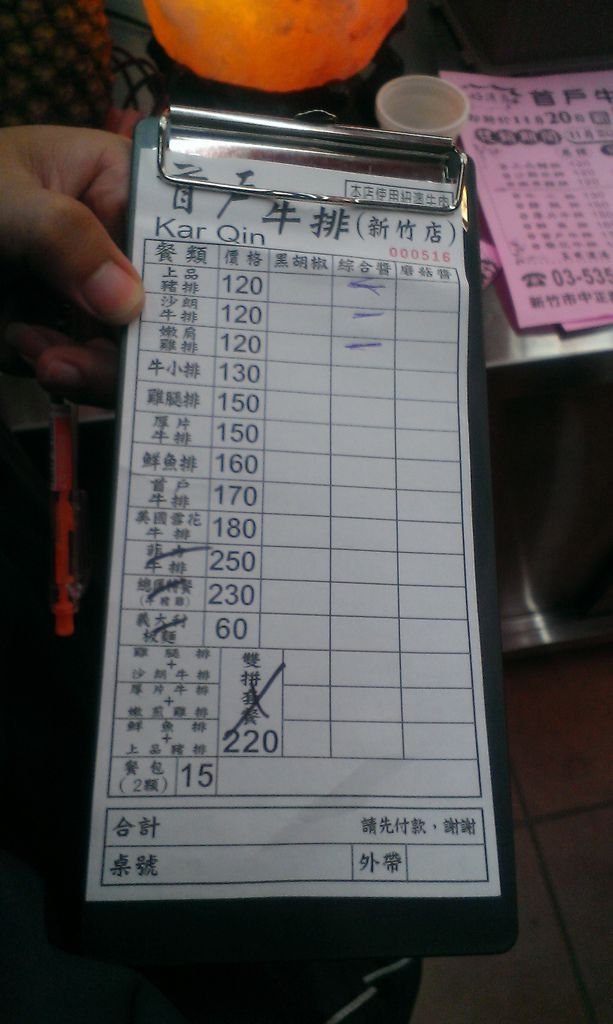 首戶牛排(新竹店)
本店使用紐澳牛肉
Kar Qin
000516
餐類 價格 黑胡椒 綜合醬 蘑菇醬
上品豬排 120
沙朗牛排 120
嫩肩雞排 120
牛小排 130
雞腿排 150
厚片牛排 150
鮮魚排 160
首戶牛排 170
美國雪花牛排 180
菲力牛排 250
230
義大利板麵 60
雞腿排+沙朗牛排
厚片牛排+嫩煎雞排
鮮魚排+上品豬排
雙拼套餐 220
餐包(2顆) 15
合計 請先付款,謝謝
桌號 外帶
首戶牛
11月20
11月
120
03-535
新竹市中正